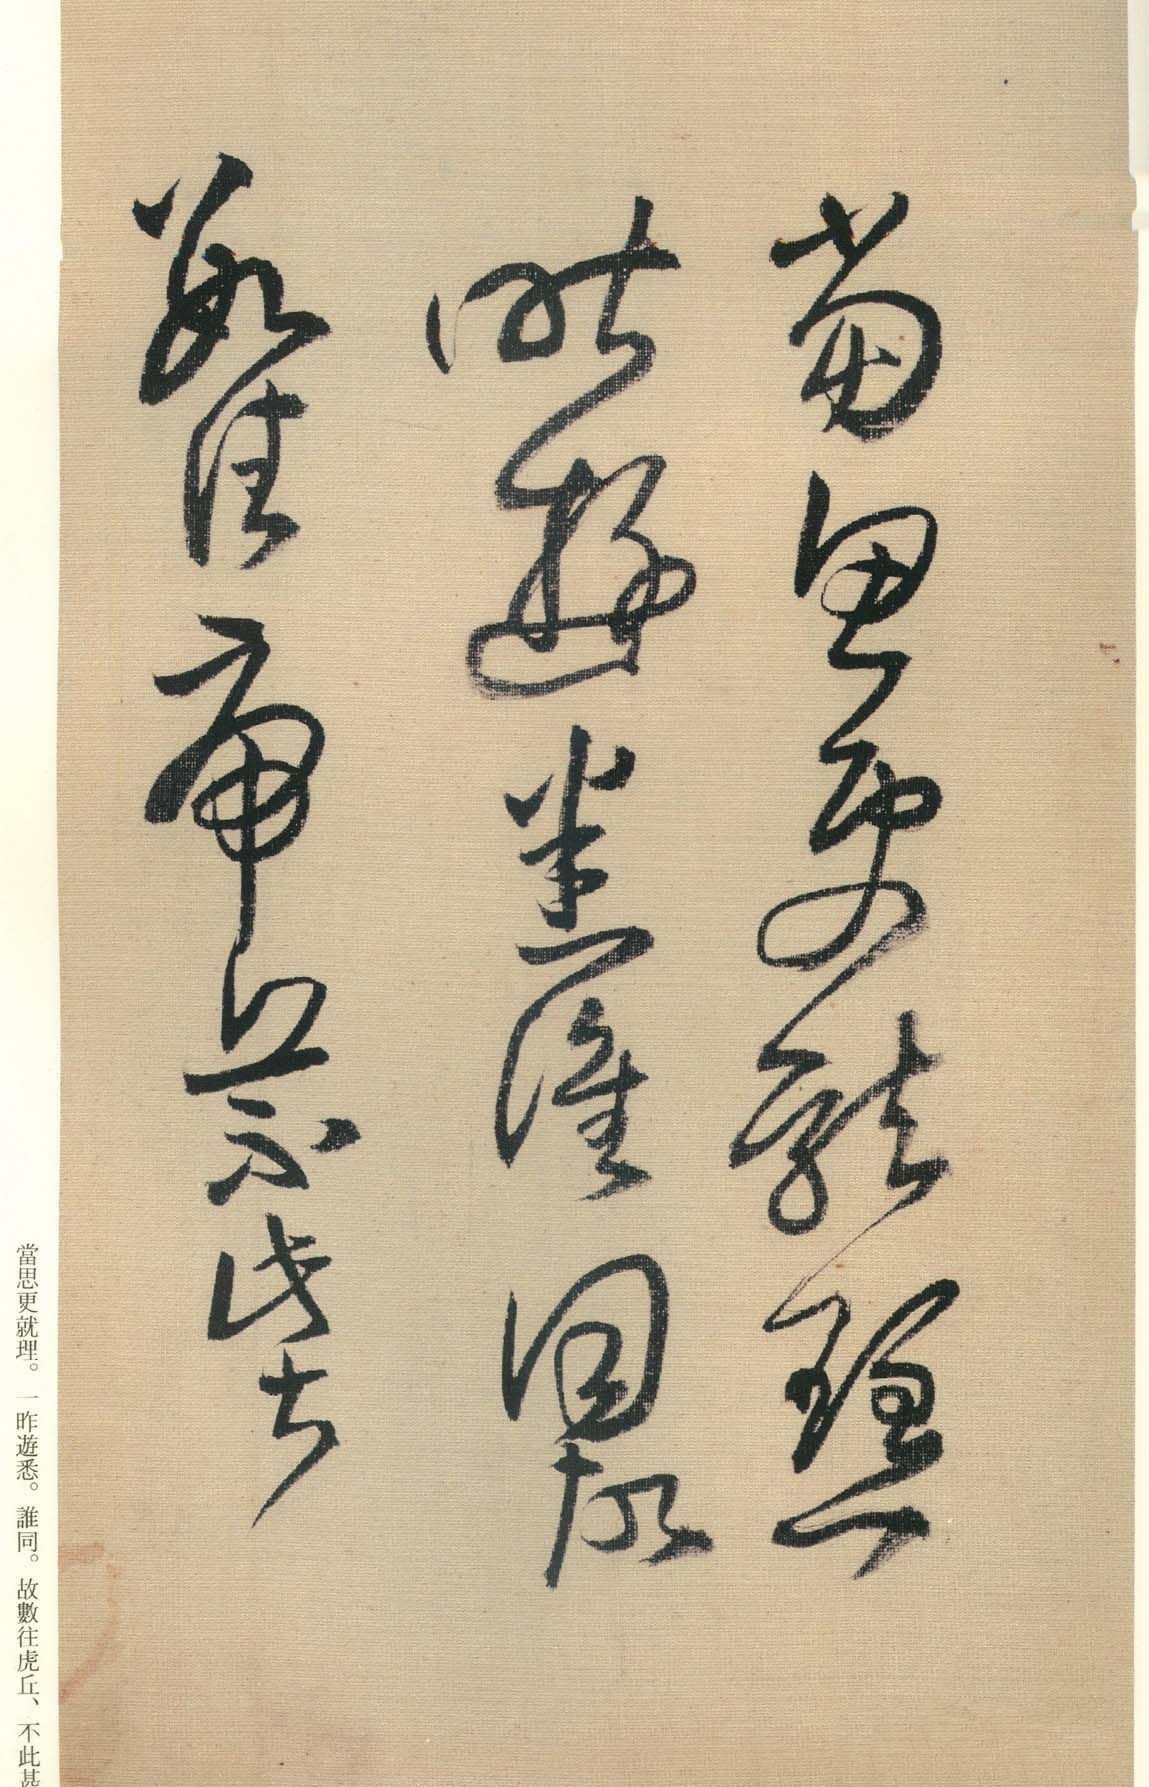 當思更就理一
昨遊悉誰同故
數往虎丘不此甚
當思更就理。一昨遊悉。誰同。故數往虎丘、不此甚